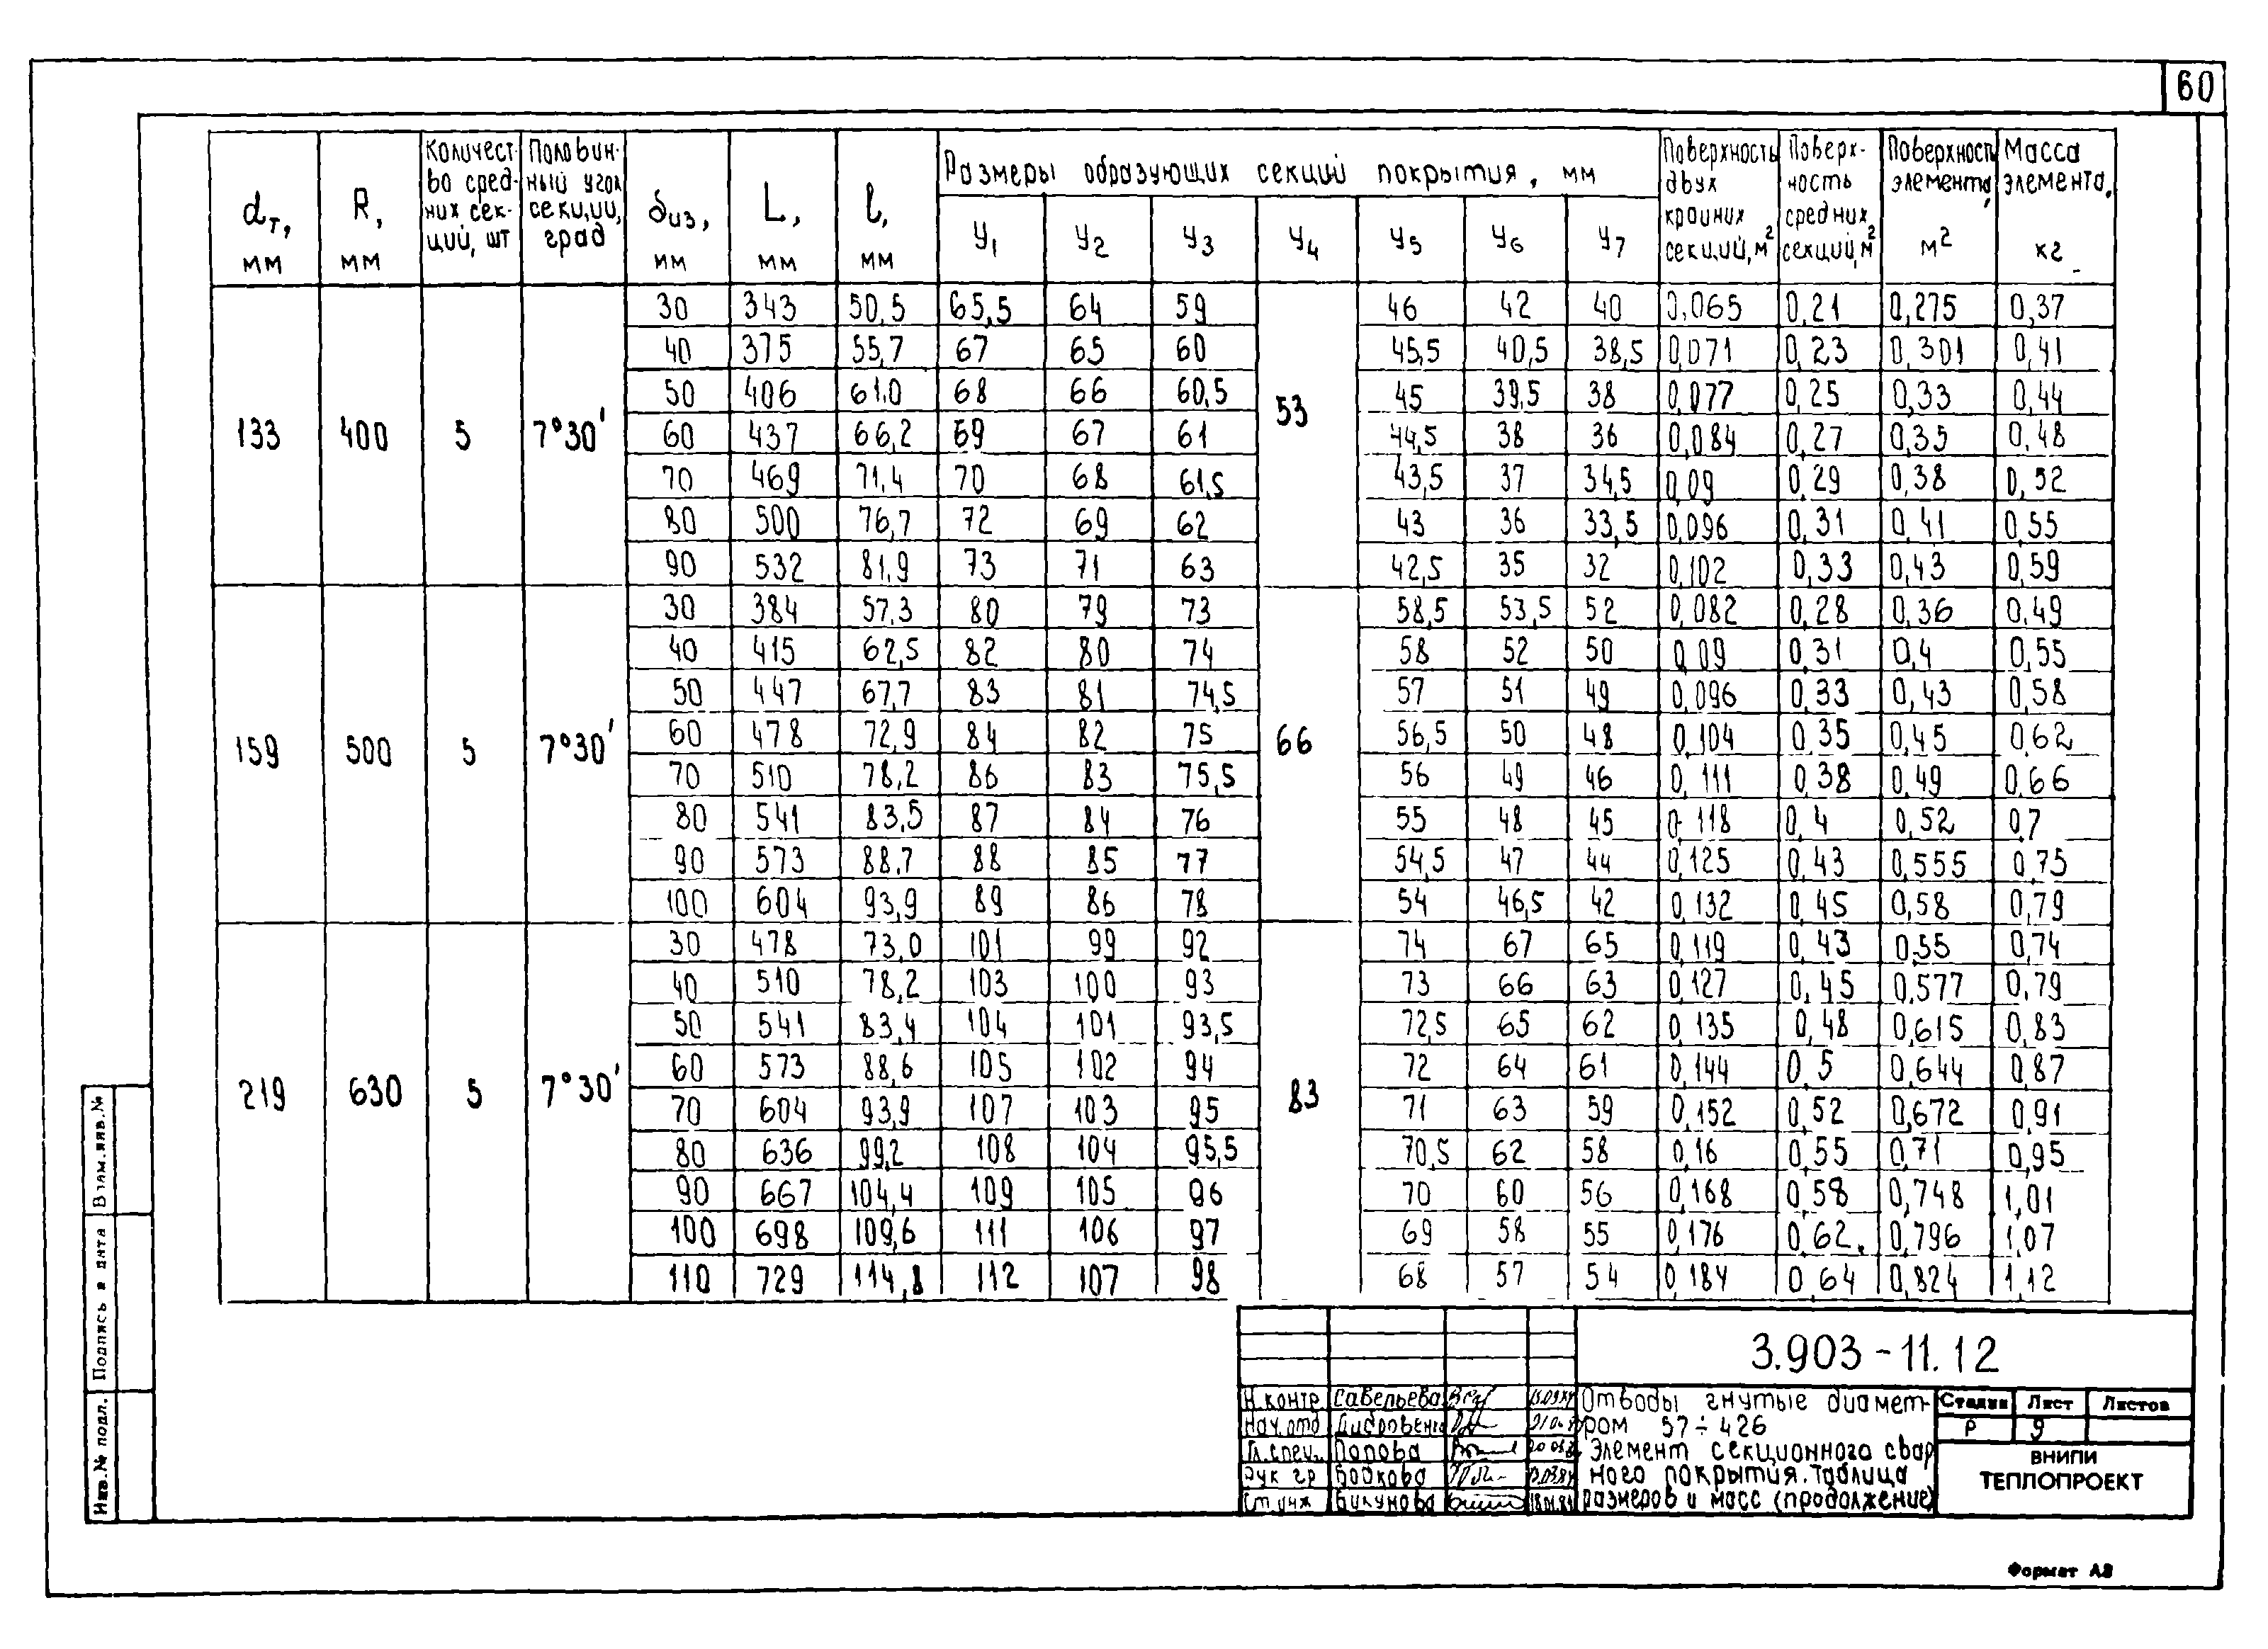 60
dт, мм R, мм Количест-во сред-них сек-ций, шт Половин-ный угол секции, град δиз, мм L, мм l, мм Размеры образующих секций покрытия, мм Поверхность двух крайних секций, м² Поверх-ность средних секций, м² Поверхность элемента, м² Масса элемента, кг
y1 y2 y3 y4 y5 y6 y7
133 400 5 7°30' 53
30 343 50,5 65,5 64 59 46 42 40 0,065 0,21 0,275 0,37
40 375 55,7 67 65 60 45,5 40,5 38,5 0,071 0,23 0,301 0,41
50 406 61,0 68 66 60,5 45 39,5 38 0,077 0,25 0,33 0,44
60 437 66,2 69 67 61 44,5 38 36 0,084 0,27 0,35 0,48
70 469 71,4 70 68 61,5 43,5 37 34,5 0,09 0,29 0,38 0,52
80 500 76,7 72 69 62 43 36 33,5 0,096 0,31 0,41 0,55
90 532 81,9 73 71 63 42,5 35 32 0,102 0,33 0,43 0,59
159 500 5 7°30' 66
30 384 57,3 80 79 73 58,5 53,5 52 0,082 0,28 0,36 0,49
40 415 62,5 82 80 74 58 52 50 0,09 0,31 0,4 0,55
50 447 67,7 83 81 74,5 57 51 49 0,096 0,33 0,43 0,58
60 478 72,9 84 82 75 56,5 50 48 0,104 0,35 0,45 0,62
70 510 78,2 86 83 75,5 56 49 46 0,111 0,38 0,49 0,66
80 541 83,5 87 84 76 55 48 45 0,118 0,4 0,52 0,7
90 573 88,7 88 85 77 54,5 47 44 0,125 0,43 0,555 0,75
100 604 93,9 89 86 78 54 46,5 42 0,132 0,45 0,58 0,79
219 630 5 7°30' 83
30 478 73,0 101 99 92 74 67 65 0,119 0,43 0,55 0,74
40 510 78,2 103 100 93 73 66 63 0,127 0,45 0,577 0,79
50 541 83,4 104 101 93,5 72,5 65 62 0,135 0,48 0,615 0,83
60 573 88,6 105 102 94 72 64 61 0,144 0,5 0,644 0,87
70 604 93,9 107 103 95 71 63 59 0,152 0,52 0,672 0,91
80 636 99,2 108 104 95,5 70,5 62 58 0,16 0,55 0,71 0,95
90 667 104,4 109 105 96 70 60 56 0,168 0,58 0,748 1,01
100 698 109,6 111 106 97 69 58 55 0,176 0,62 0,796 1,07
110 729 114,8 112 107 98 68 57 54 0,184 0,64 0,824 1,12
Инв.№ подл. Подпись и дата Взам.инв.№
3.903-11.12
Н.контр Савельева
Нач.отд
Гл.спец. Попова
Рук гр Бойкова
Ст инж Бикунова
Отводы гнутые диамет-
ром 57÷426
Элемент секционного свар
ного покрытия. Таблица
размеров и масс (продолжение)
Стадия Лист Листов
Р 9
ВНИПИ
ТЕПЛОПРОЕКТ
Формат А3